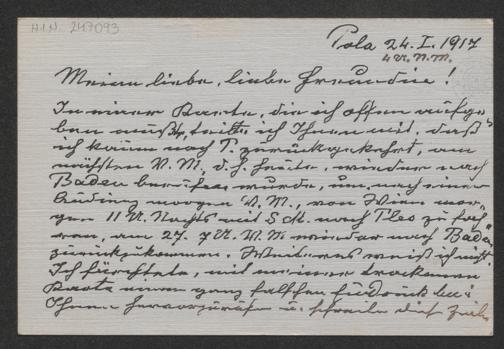 H.I.N. 247093
Pola 24. I. 1917
4 U. N. M.
Meine liebe, liebe Freundin!
In einer Karte, die ich offen aufge-
ben mußte, teilte ich Ihnen mit, daß
ich kaum nach P. zurückgekehrt, am
nächsten N. M., d. h. heute, wieder nach
Baden berufen wurde, um nach einer
morgen N. M., von Wien mor-
gen 11 U. Nachts mit S M. nach Pless zu fah-
ren, am 27. 7 U. N. M. wieder nach Baden
zurückzukommen. Weiteres weiß ich nicht.
Ich fürchtete, mit meiner trockenen
Karte einen ganz falschen Eindruck bei
Ihnen hervorzurufen u. schreibe diese Zeilen